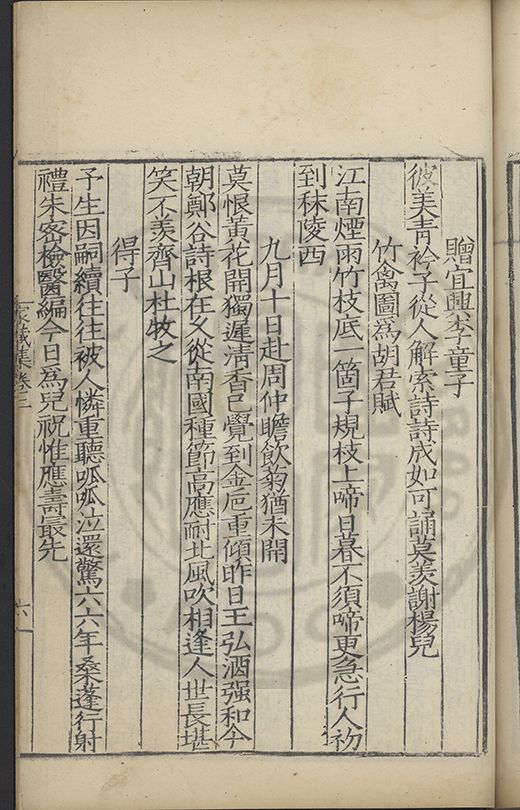 贈宜興李童子
彼美青衿子從人解索詩詩成如可誦莫羨謝楊兒
竹禽圖爲胡君賦
江南煙雨竹枝底一箇子規枝上啼日暮不須啼更急行人初
到秣陵西
九月十日赴周仲瞻飲菊猶未開
莫恨黃花開獨遲清香已覺到金卮重傾昨日王弘酒强和今
朝鄭谷詩根在久從南國種節高應耐北風吹相逢人世長堪
笑不羡齊山杜牧之
得子
予生因嗣續往往被人憐重聽呱呱泣還驚六六年桑蓬行射
禮朱宻檢醫編今日爲兒祝惟應壽最先
家藏集卷三
六